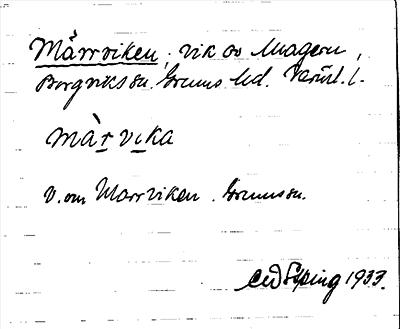 Märrviken, vik av Magern,
Borgvikssn. Grums hd. Värml. l.
Màrvika
V. om Marrviken. Grumssn.
1933.